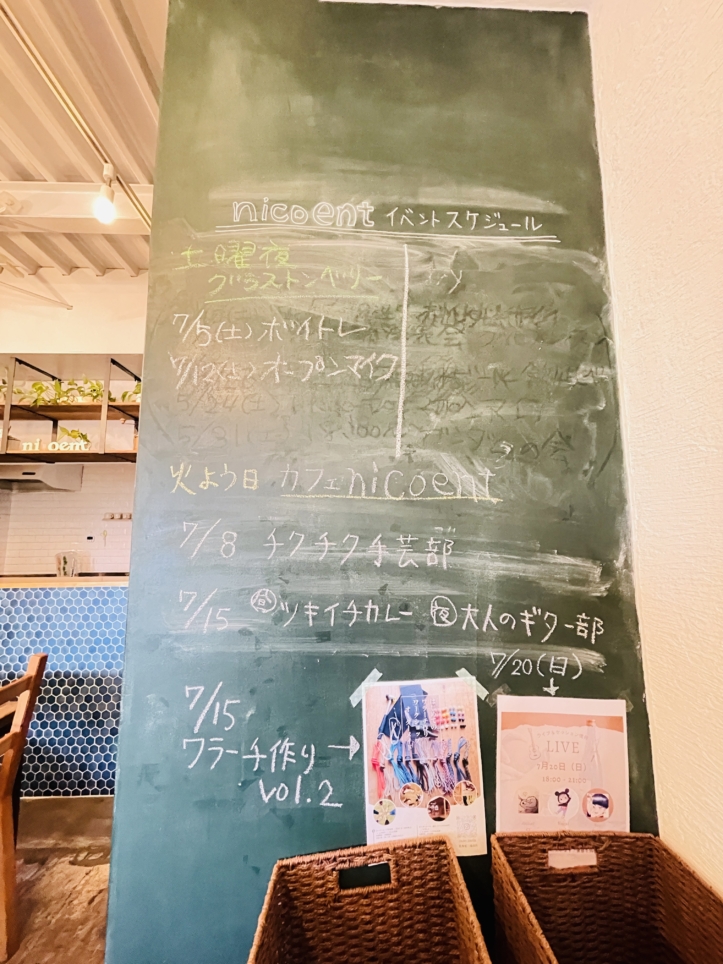 nicoent イベントスケジュール
土曜夜
グラストンベリー
7/5(土)ボイトレ
7/12(土)オープンマイク
火よう日 カフェnicoent
7/8 チクチク手芸部
7/15 昼ツキイチカレー 夜大人のギター部
7/20(日)
7/15
ワラーチ作り→
vol.2
LIVE
7月20日(日)